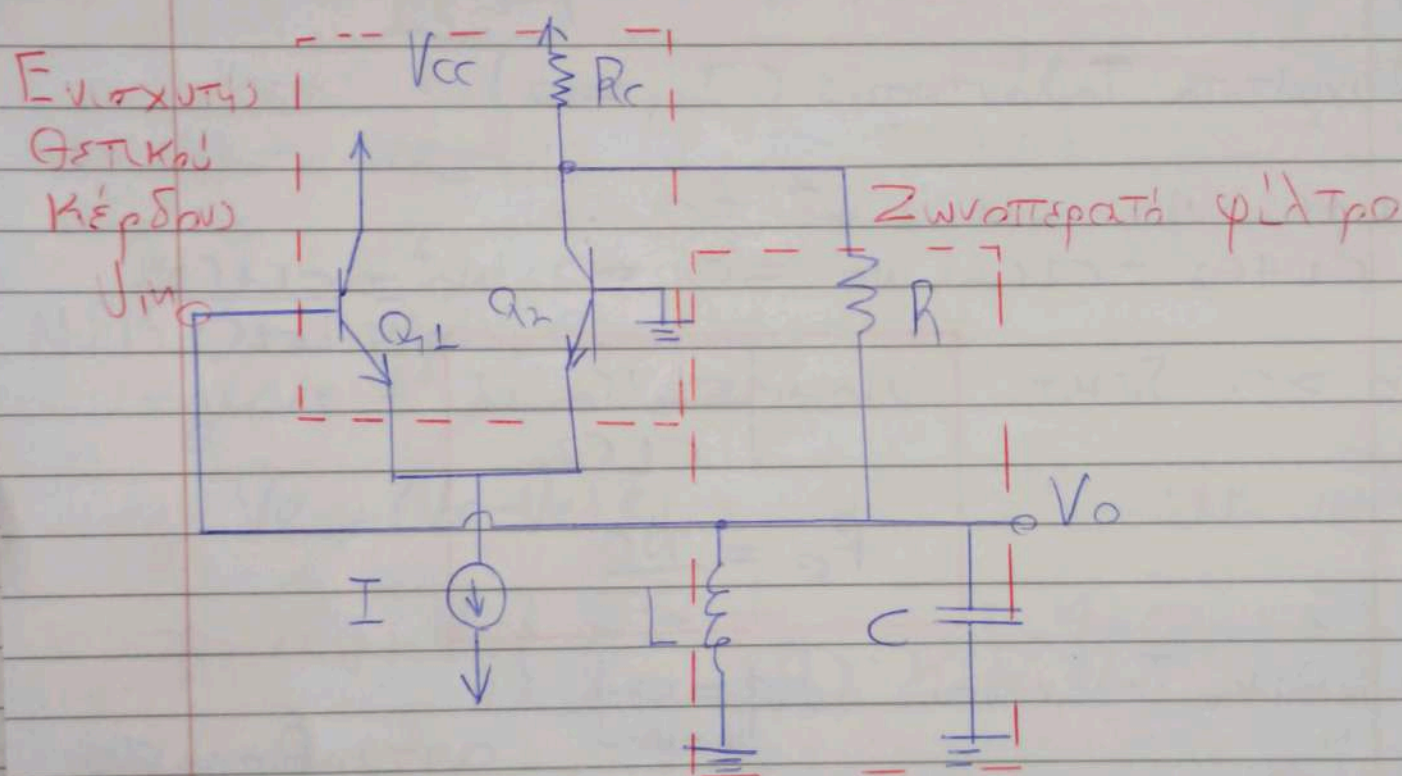 Ενισχυτής
Θετικού
Κέρδους
Vcc
Rc
Ζωνοπερατό φίλτρο
Uin
Q1
Q2
R
Vo
I
L
C